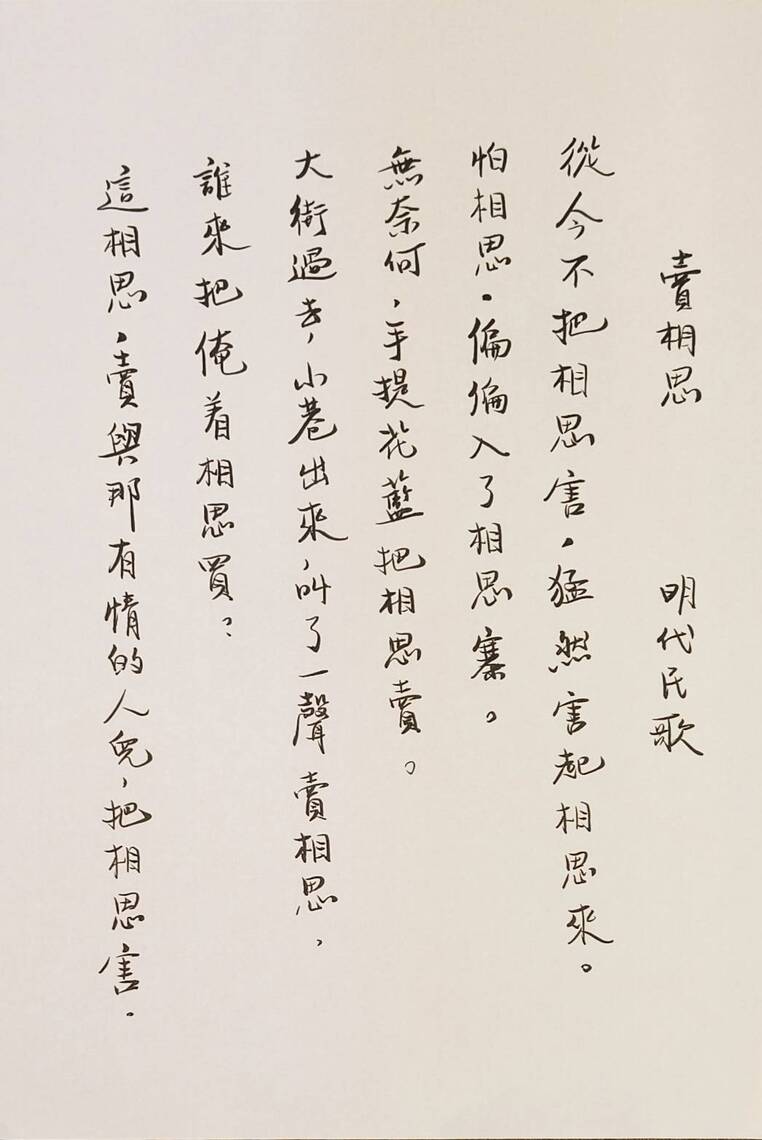 賣相思 明代民歌
從今不把相思害，猛然害起相思來。
怕相思，偏偏入了相思寨。
無奈何，手提花藍把相思賣。
大街過去，小巷出來，叫了一聲賣相思，
誰來把俺着相思買？
這相思，賣與那有情的人兒，把相思害。